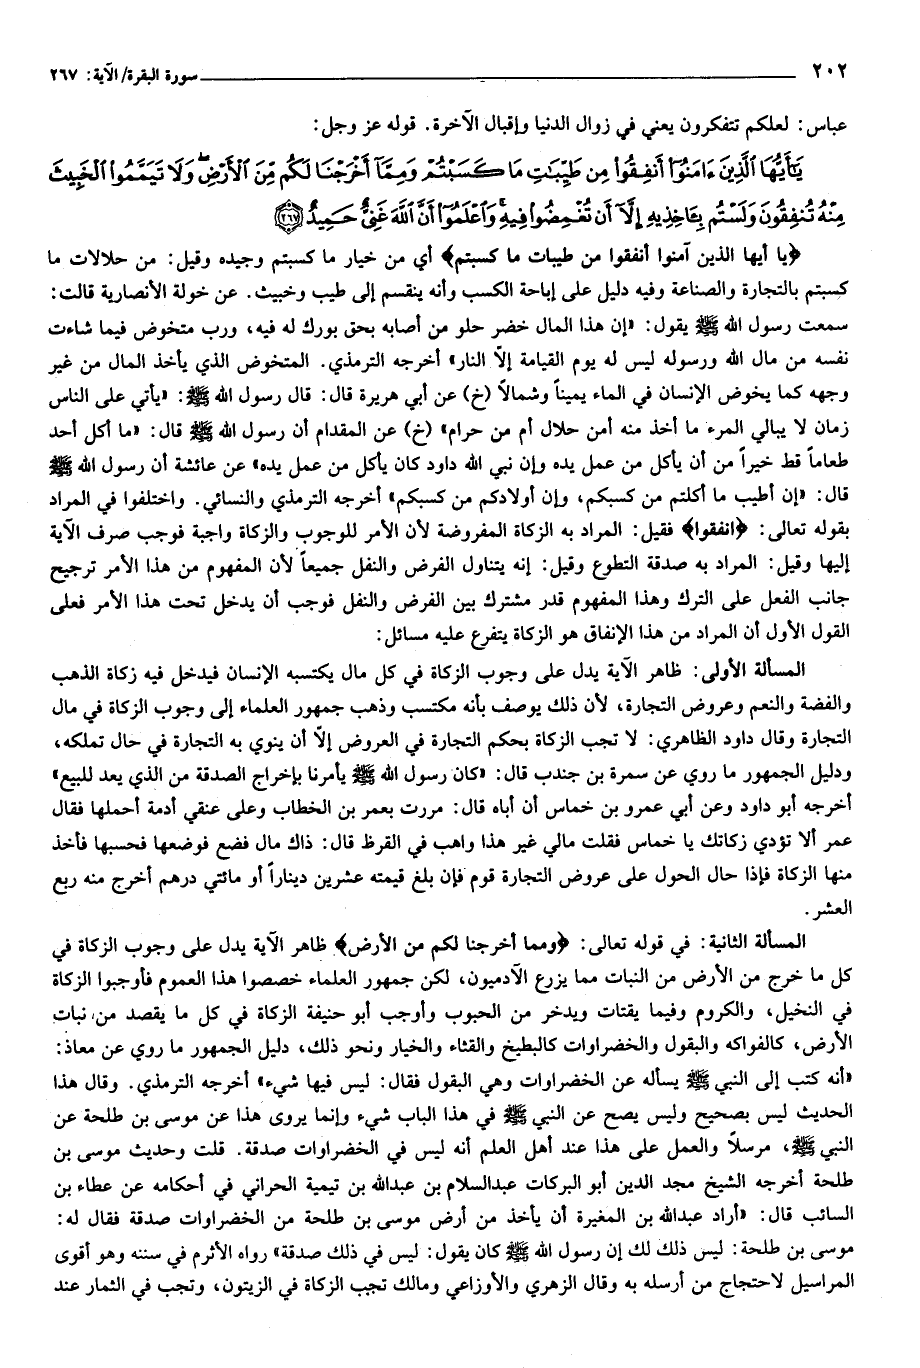 ٢٠٢ سورة البقرة/ الآية: ٢٦٧
عباس: لعلكم تتفكرون يعني في زوال الدنيا وإقبال الآخرة. قوله عز وجل:
يَٰٓأَيُّهَا ٱلَّذِينَ ءَامَنُوٓا۟ أَنفِقُوا۟ مِن طَيِّبَٰتِ مَا كَسَبْتُمْ وَمِمَّآ أَخْرَجْنَا لَكُم مِّنَ ٱلْأَرْضِ ۖ وَلَا تَيَمَّمُوا۟ ٱلْخَبِيثَ
مِنْهُ تُنفِقُونَ وَلَسْتُم بِـَٔاخِذِيهِ إِلَّآ أَن تُغْمِضُوا۟ فِيهِ ۚ وَٱعْلَمُوٓا۟ أَنَّ ٱللَّهَ غَنِىٌّ حَمِيدٌ ﴿٢٦٧﴾
﴿يا أيها الذين آمنوا أنفقوا من طيبات ما كسبتم﴾ أي من خيار ما كسبتم وجيده وقيل: من حلالات ما
كسبتم بالتجارة والصناعة وفيه دليل على إباحة الكسب وأنه ينقسم إلى طيب وخبيث. عن خولة الأنصارية قالت:
سمعت رسول الله ﷺ يقول: «إن هذا المال خضر حلو من أصابه بحق بورك له فيه، ورب متخوض فيما شاءت
نفسه من مال الله ورسوله ليس له يوم القيامة إلاّ النار» أخرجه الترمذي. المتخوض الذي يأخذ المال من غير
وجهه كما يخوض الإنسان في الماء يميناً وشمالاً (خ) عن أبي هريرة قال: قال رسول الله ﷺ: «يأتي على الناس
زمان لا يبالي المرء ما أخذ منه أمن حلال أم من حرام» (خ) عن المقدام أن رسول الله ﷺ قال: «ما أكل أحد
طعاماً قط خيراً من أن يأكل من عمل يده وإن نبي الله داود كان يأكل من عمل يده» عن عائشة أن رسول الله ﷺ
قال: «إن أطيب ما أكلتم من كسبكم، وإن أولادكم من كسبكم» أخرجه الترمذي والنسائي. واختلفوا في المراد
بقوله تعالى: ﴿انفقوا﴾ فقيل: المراد به الزكاة المفروضة لأن الأمر للوجوب والزكاة واجبة فوجب صرف الآية
إليها وقيل: المراد به صدقة التطوع وقيل: إنه يتناول الفرض والنفل جميعاً لأن المفهوم من هذا الأمر ترجيح
جانب الفعل على الترك وهذا المفهوم قدر مشترك بين الفرض والنفل فوجب أن يدخل تحت هذا الأمر فعلى
القول الأول أن المراد من هذا الإنفاق هو الزكاة يتفرع عليه مسائل:
المسألة الأولى: ظاهر الآية يدل على وجوب الزكاة في كل مال يكتسبه الإنسان فيدخل فيه زكاة الذهب
والفضة والنعم وعروض التجارة، لأن ذلك يوصف بأنه مكتسب وذهب جمهور العلماء إلى وجوب الزكاة في مال
التجارة وقال داود الظاهري: لا تجب الزكاة بحكم التجارة في العروض إلاّ أن ينوي به التجارة في حال تملكه،
ودليل الجمهور ما روي عن سمرة بن جندب قال: «كان رسول الله ﷺ يأمرنا بإخراج الصدقة من الذي يعد للبيع»
أخرجه أبو داود وعن أبي عمرو بن خماس أن أباه قال: مررت بعمر بن الخطاب وعلى عنقي أدمة أحملها فقال
عمر ألا تؤدي زكاتك يا خماس فقلت مالي غير هذا واهب في القرظ قال: ذاك مال فضع فوضعها فحسبها فأخذ
منها الزكاة فإذا حال الحول على عروض التجارة قوم فإن بلغ قيمته عشرين ديناراً أو مائتي درهم أخرج منه ربع
العشر.
المسألة الثانية: في قوله تعالى: ﴿ومما أخرجنا لكم من الأرض﴾ ظاهر الآية يدل على وجوب الزكاة في
كل ما خرج من الأرض من النبات مما يزرع الآدميون، لكن جمهور العلماء خصصوا هذا العموم فأوجبوا الزكاة
في النخيل، والكروم وفيما يقتات ويدخر من الحبوب وأوجب أبو حنيفة الزكاة في كل ما يقصد من نبات
الأرض، كالفواكه والبقول والخضراوات كالبطيخ والقثاء والخيار ونحو ذلك، دليل الجمهور ما روي عن معاذ:
«أنه كتب إلى النبي ﷺ يسأله عن الخضراوات وهي البقول فقال: ليس فيها شيء» أخرجه الترمذي. وقال هذا
الحديث ليس بصحيح وليس يصح عن النبي ﷺ في هذا الباب شيء وإنما يروى هذا عن موسى بن طلحة عن
النبي ﷺ، مرسلاً والعمل على هذا عند أهل العلم أنه ليس في الخضراوات صدقة. قلت وحديث موسى بن
طلحة أخرجه الشيخ مجد الدين أبو البركات عبدالسلام بن عبدالله بن تيمية الحراني في أحكامه عن عطاء بن
السائب قال: «أراد عبدالله بن المغيرة أن يأخذ من أرض موسى بن طلحة من الخضراوات صدقة فقال له:
موسى بن طلحة: ليس ذلك لك إن رسول الله ﷺ كان يقول: ليس في ذلك صدقة» رواه الأثرم في سننه وهو أقوى
المراسيل لاحتجاج من أرسله به وقال الزهري والأوزاعي ومالك تجب الزكاة في الزيتون، وتجب في الثمار عند